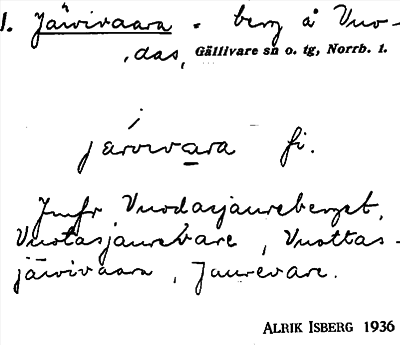 1. Jäivivaara - berg å Vuo-
das, Gällivare sn o. tg, Norrb. l.
järvivara fi.
Jmfr Vuodasjaureberget,
Vuotasjaurebare, Vuottas-
jäivivaara, Jaurevare.
ALRIK ISBERG 1936